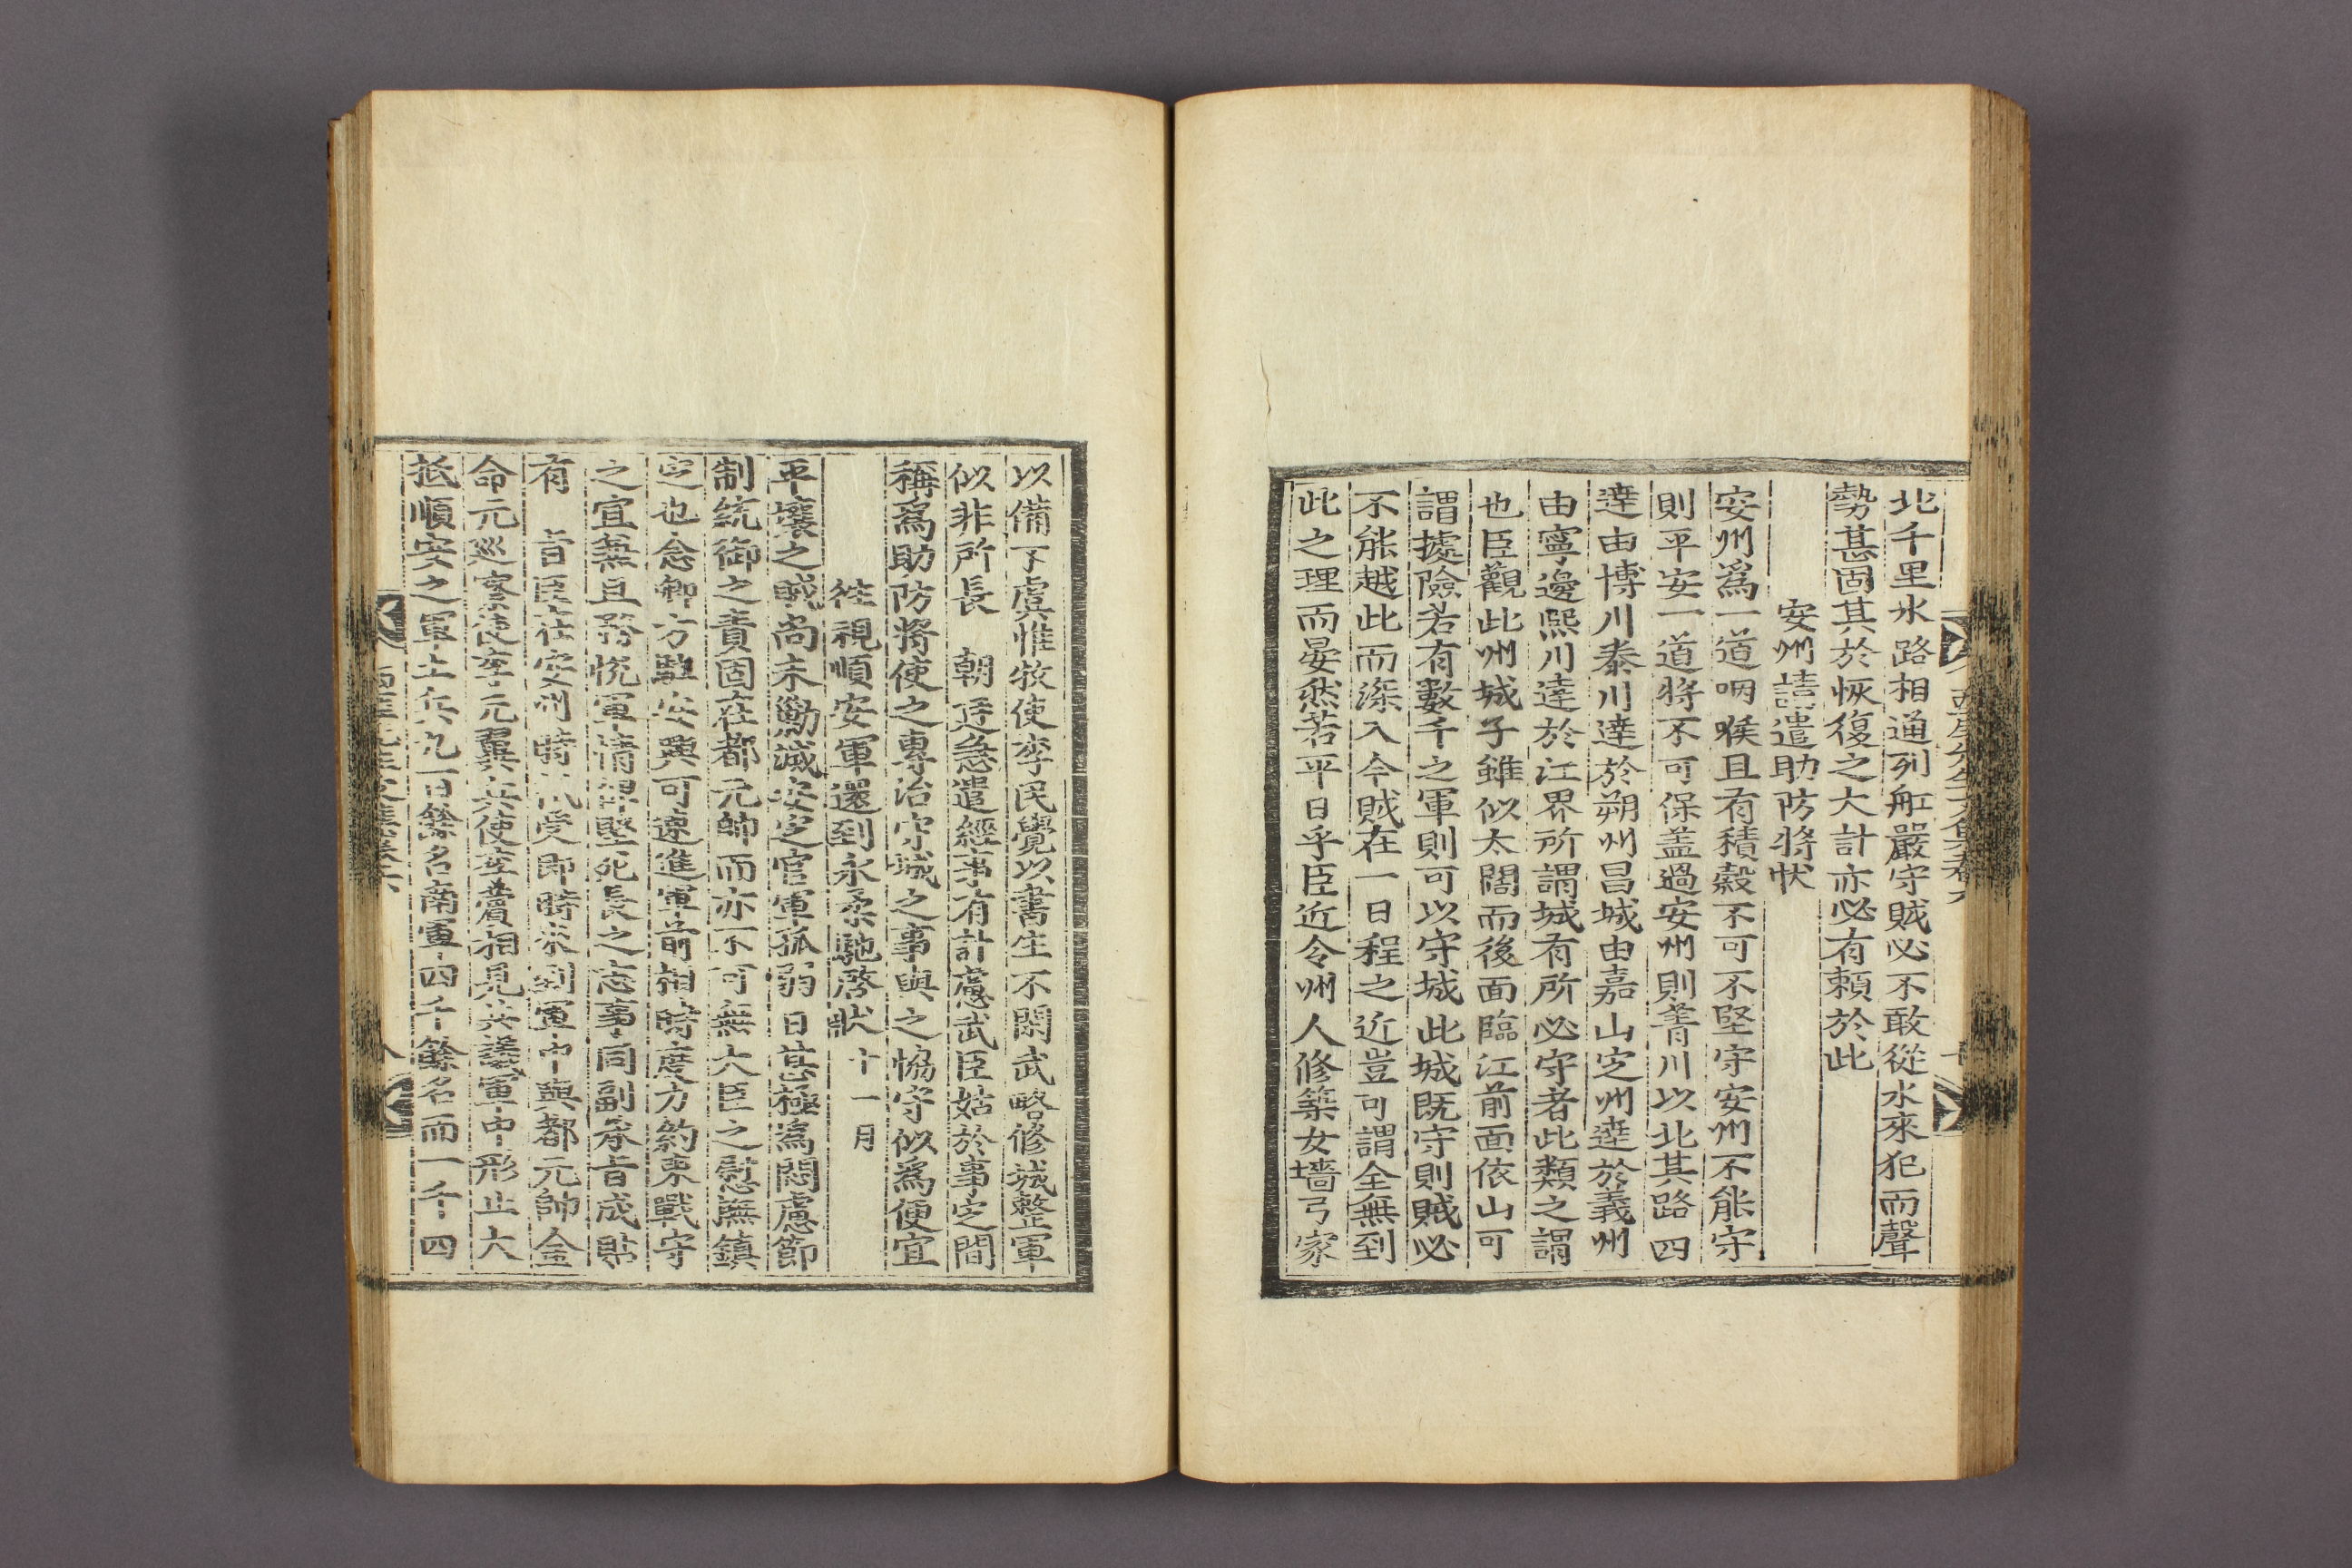 北千里水路相通列舡嚴守賊必不敢從水來犯而聲
勢甚固其於恢復之大計亦必有賴於此
安州請遣助防將狀
安州爲一道咽喉且有積穀不可不堅守安州不能守
則平安一道將不可保盖過安州則靑川以北其路四
達由博川泰川達於朔州昌城由嘉山定州達於義州
由寧邊熙川達於江界所謂城有所必守者此類之謂
也臣觀此州城子雖似太闊而後面臨江前面依山可
謂據險若有數千之軍則可以守城此城旣守則賊必
不能越此而深入今賊在一日程之近豈可謂全無到
此之理而晏然若平日乎臣近令州人修築女墻弓家
以備不虞惟牧使李民覺以書生不閑武略修城整軍
似非所長 朝廷急遣經事有計慮武臣姑於事定間
稱爲助防將使之專治守城之事與之恊守似爲便宜
往視順安軍還到永柔馳啓狀 十一月
平壤之賊尙未勦滅安定官軍孤弱日甚極爲悶慮節
制統御之責固在都元帥而亦不可無大臣之慰撫鎭
定也念卿方駐安興可速進軍前相時度方約束戰守
之宜兼且務悅軍情俾堅死長之志事同副承旨成貼
有 旨臣在安州時祗受卽時來到軍中與都元帥金
命元巡察使李元翼兵使李薲相見共議軍中形止大
抵順安之軍土兵九百餘名南軍四千餘名而一千四